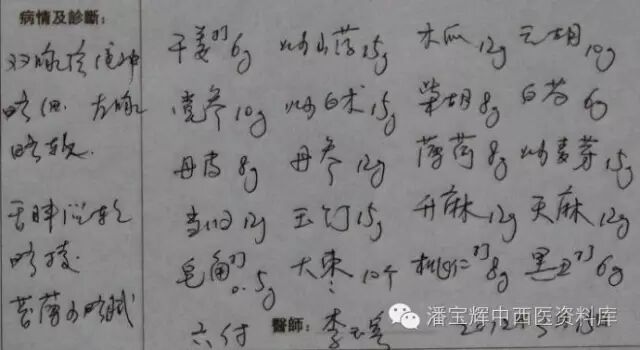 病情及診斷:
双脉
略细 左脉
略软
舌胖
苔薄 略腻
干姜 6g 炒山药 15g 木瓜 12g 元胡 10g
党参 10g 炒白术 15g 柴胡 8g 白芍 6g
丹皮 8g 丹参 12g 薄荷 8g 炒麦芽 15g
当归 12g 玉竹 15g 升麻 12g 天麻 12g
皂角 0.5g 大枣 10个 桃仁 8g 黑丑 6g
六付 醫師:
潘宝辉中西医资料库